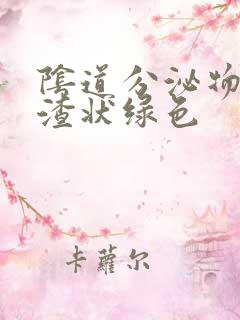 陰道分泌物
渣状绿色
卡蘿尔